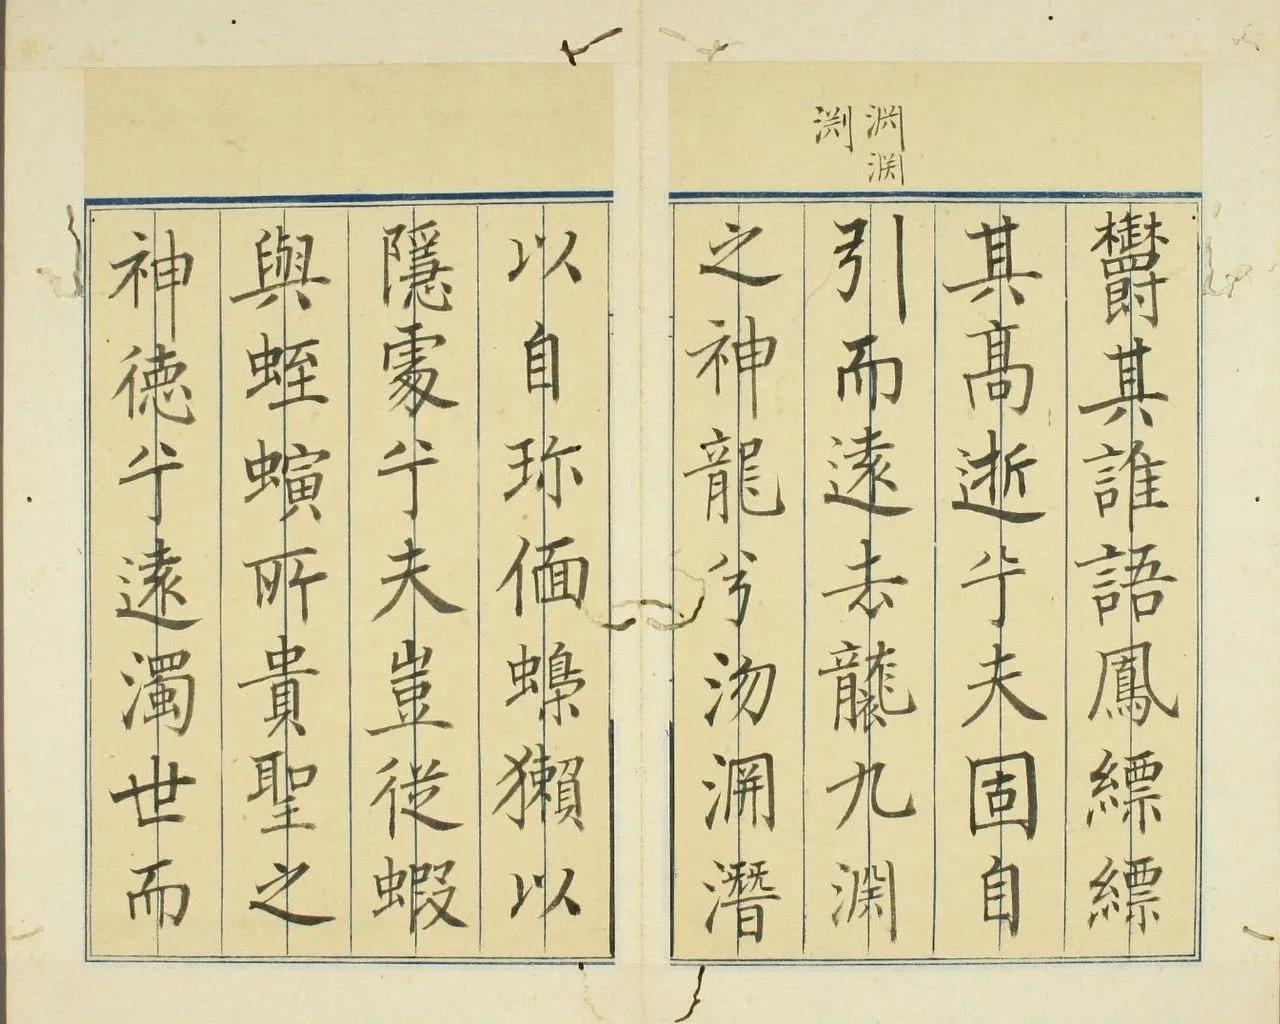 渊渊
渕
欝其誰語鳳縹縹
其髙逝兮夫固自
引而遠去襲九渊
之神龍兮沕渊潛
以自珎偭蟂獺以
隱處兮夫豈從蝦
與蛭螾所貴聖之
神徳兮遠濁世而